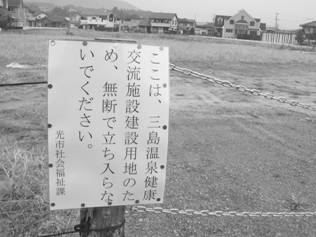 ここは、三島温泉健康
交流施設建設用地のた
め、無断で立ち入らな
いでください。
光市社会福祉課